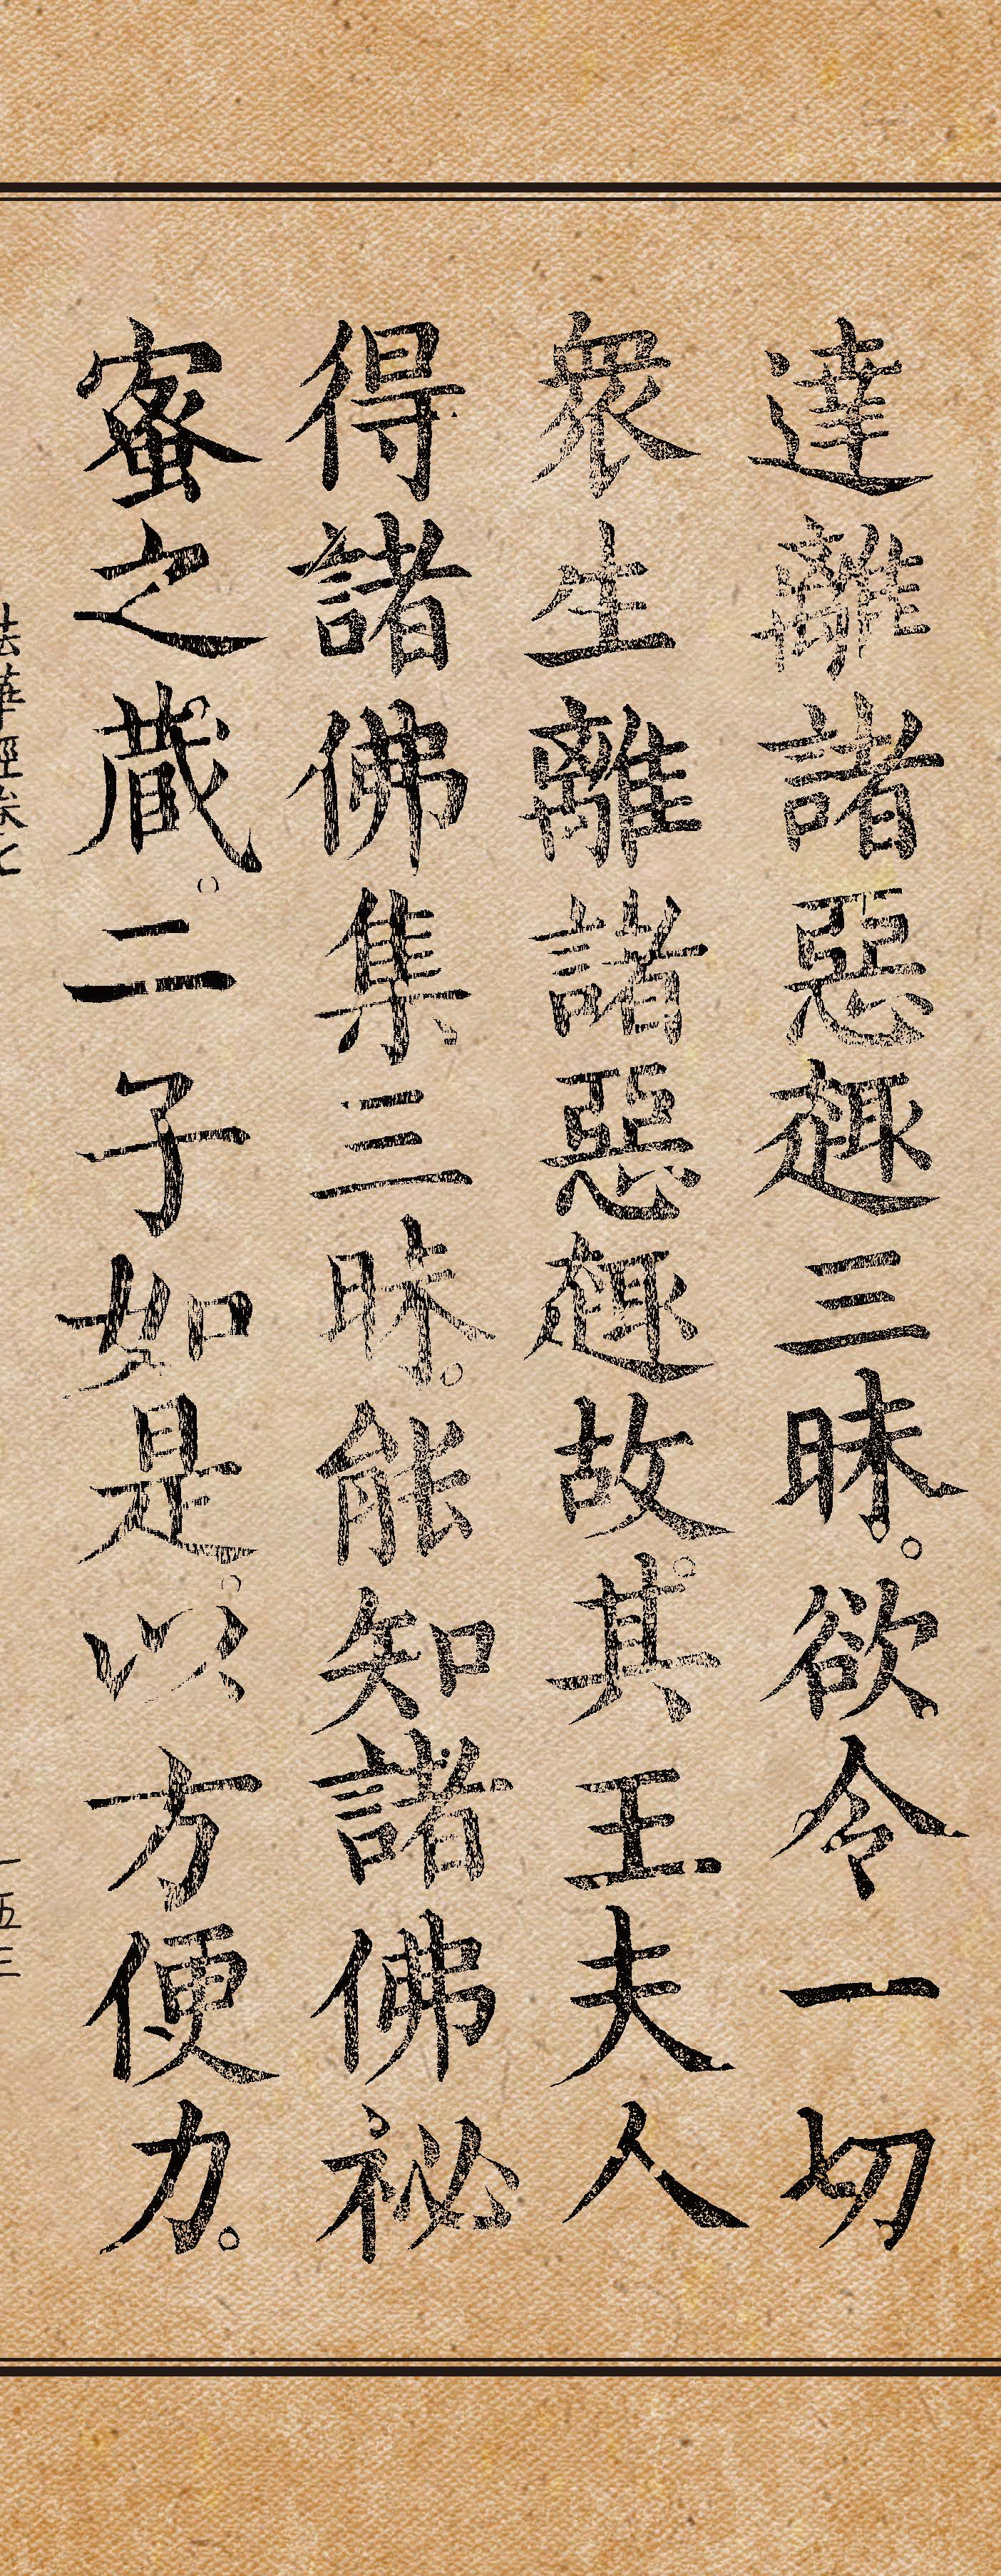 達離諸惡趣三昧。欲令一切
衆生離諸惡趣故。其王夫人
得諸佛集三昧。能知諸佛祕
蜜之藏。二子如是。以方便力。
法華經卷七
一五三